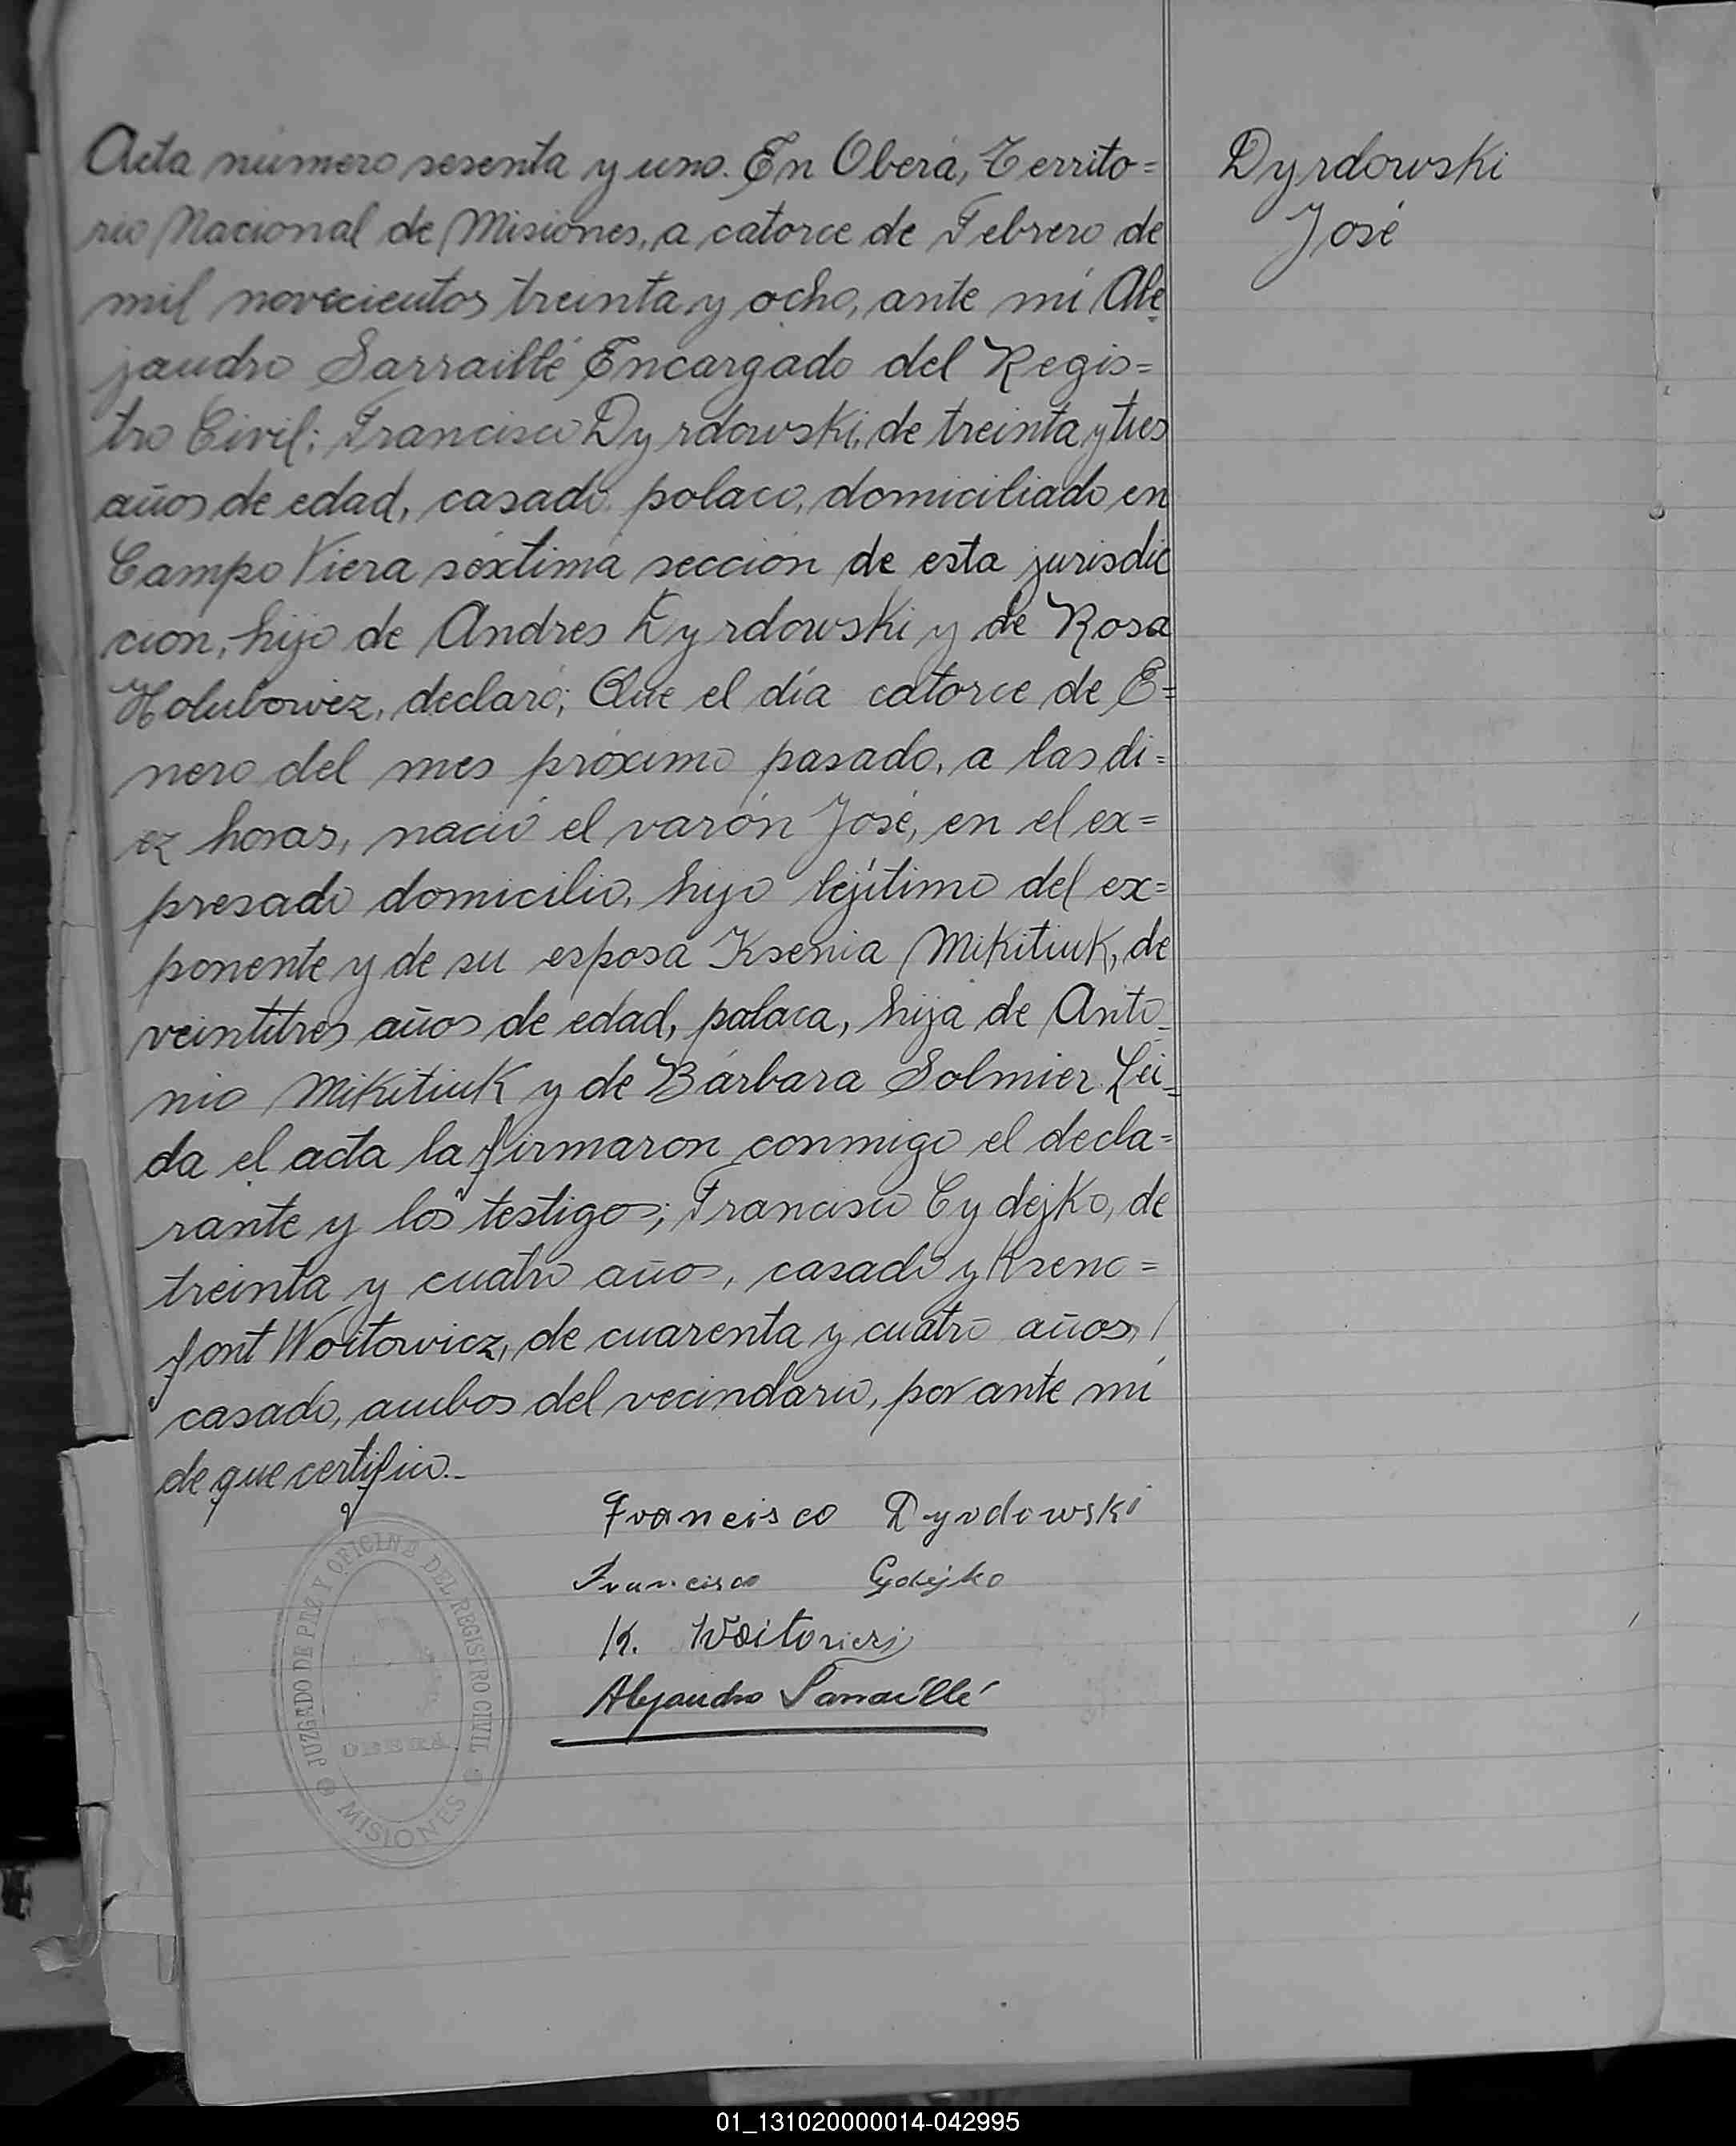 Acta número sesenta y uno. En Oberá, Territo=
rio Nacional de Misiones, a catorce de Febrero de
mil novecientos treinta y ocho, ante mí Ale
jandro Sarraillé Encargado del Regis=
tro Civil; Francisco Dyrdowski, de treinta y tres
años de edad, casado, polaco, domiciliado en
Campo Viera séxtima sección de esta jurisdic
cion, hijo de Andres Dyrdowski y de Rosa
Holubowez, declaró; Que el día catorce de E=
nero del mes próximo pasado, a las di=
ez horas, nació el varón José, en el ex=
presado domicilio, hijo lejítimo del ex=
ponente y de su esposa Ksenia Mikitiuk, de
veintitres años de edad, polaca, hija de Anto_
nio Mikitiuk y de Bárbara Solmier. Léi_
da el acta la firmaron conmigo el decla=
rante y los testigos; Francisco Cydejko, de
treinta y cuatro años, casado y Kseno=
font Woitowicz, de cuarenta y cuatro años,
casado, ambos del vecindario, por ante mí
de que certifico._
Francisco Dyrdowski
Francisco Cydejko
K. Woitovicz
Alejandro Sarraillé
JUZGADO DE PAZ Y OFICINA DEL REGISTRO CIVIL
OBERÁ
MISIONES
Dyrdowski
José
01_131020000014-042995